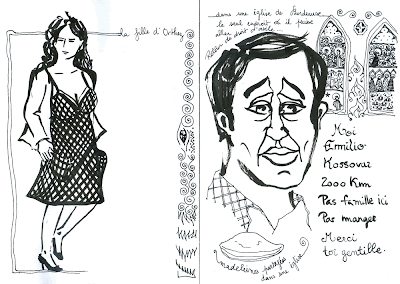 La fille d'Orthez
dans une église de Bordeaux
le seul endroit où il puisse
aller
Moi
Emilio
Kossovar
2000 Km
Pas famille ici
Pas manger
Merci
toi gentille.
madeleines partagées
dans une église